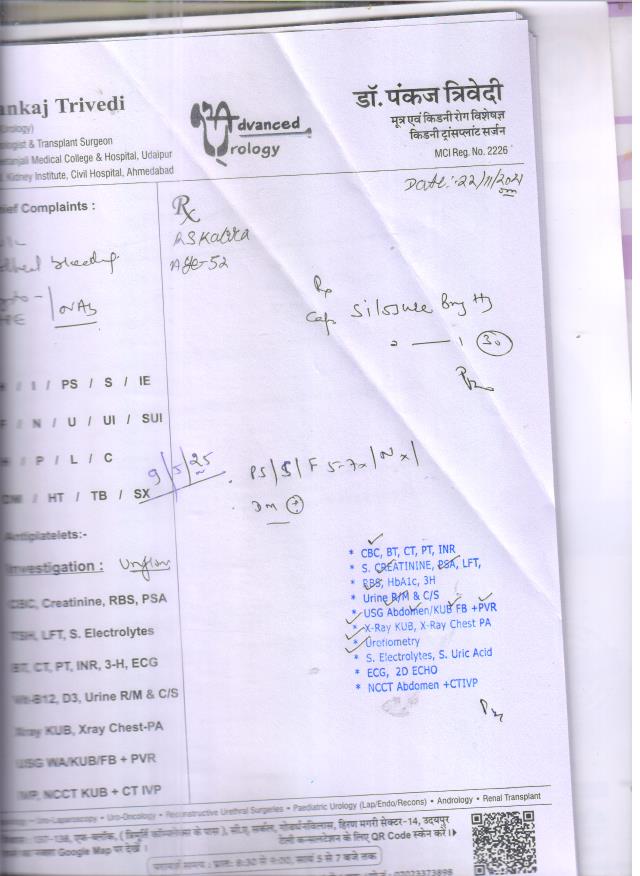 ankaj Trivedi
डॉ. पंकज त्रिवेदी
मूत्र एवं किडनी रोग विशेषज्ञ
किडनी ट्रांसप्लांट सर्जन
MCI Reg. No. 2226
Advanced
Urology
rology)
logist & Transplant Surgeon
eetanjali Medical College & Hospital, Udaipur
Kidney Institute, Civil Hospital, Ahmedabad
Date: 22/11/2021
hief Complaints :
Rx
Age-52
bleeding
NAD
Rx
Cap
1 30
/ I / PS / S / IE
/ N / U / UI / SUI
/ P / L / C
9/5/25
PS/S/F 5-7x/Nx/
DM / HT / TB / SX
DM +
Antiplatelets:-
Investigation : Uroflow
CBC, Creatinine, RBS, PSA
TSH, LFT, S. Electrolytes
BT, CT, PT, INR, 3-H, ECG
Vit-B12, D3, Urine R/M & C/S
Xray KUB, Xray Chest-PA
USG WA/KUB/FB + PVR
IMP, NCCT KUB + CT IVP
* CBC, BT, CT, PT, INR
* S. CREATININE, PSA, LFT,
* RBS, HbA1c, 3H
* Urine R/M & C/S
* USG Abdomen/KUB FB +PVR
* X-Ray KUB, X-Ray Chest PA
* Urotiometry
* S. Electrolytes, S. Uric Acid
* ECG, 2D ECHO
* NCCT Abdomen +CTIVP
Uro-Laparoscopy • Uro-Oncology • Reconstructive Urethral Surgeries • Paediatric Urology (Lap/Endo/Recons) • Andrology • Renal Transplant
137-138, एफ-ब्लॉक, ( के पास ), सी.ए. सर्कल, गोवर्धनविलास, हिरण मगरी सेक्टर-14, उदयपुर
Google Map पर देखें । टेली कन्सलटेशन के लिए QR Code स्केन करें ।
परामर्श समय : प्रातः 8:30 से 9:00, सायं 5 से 7 बजे तक